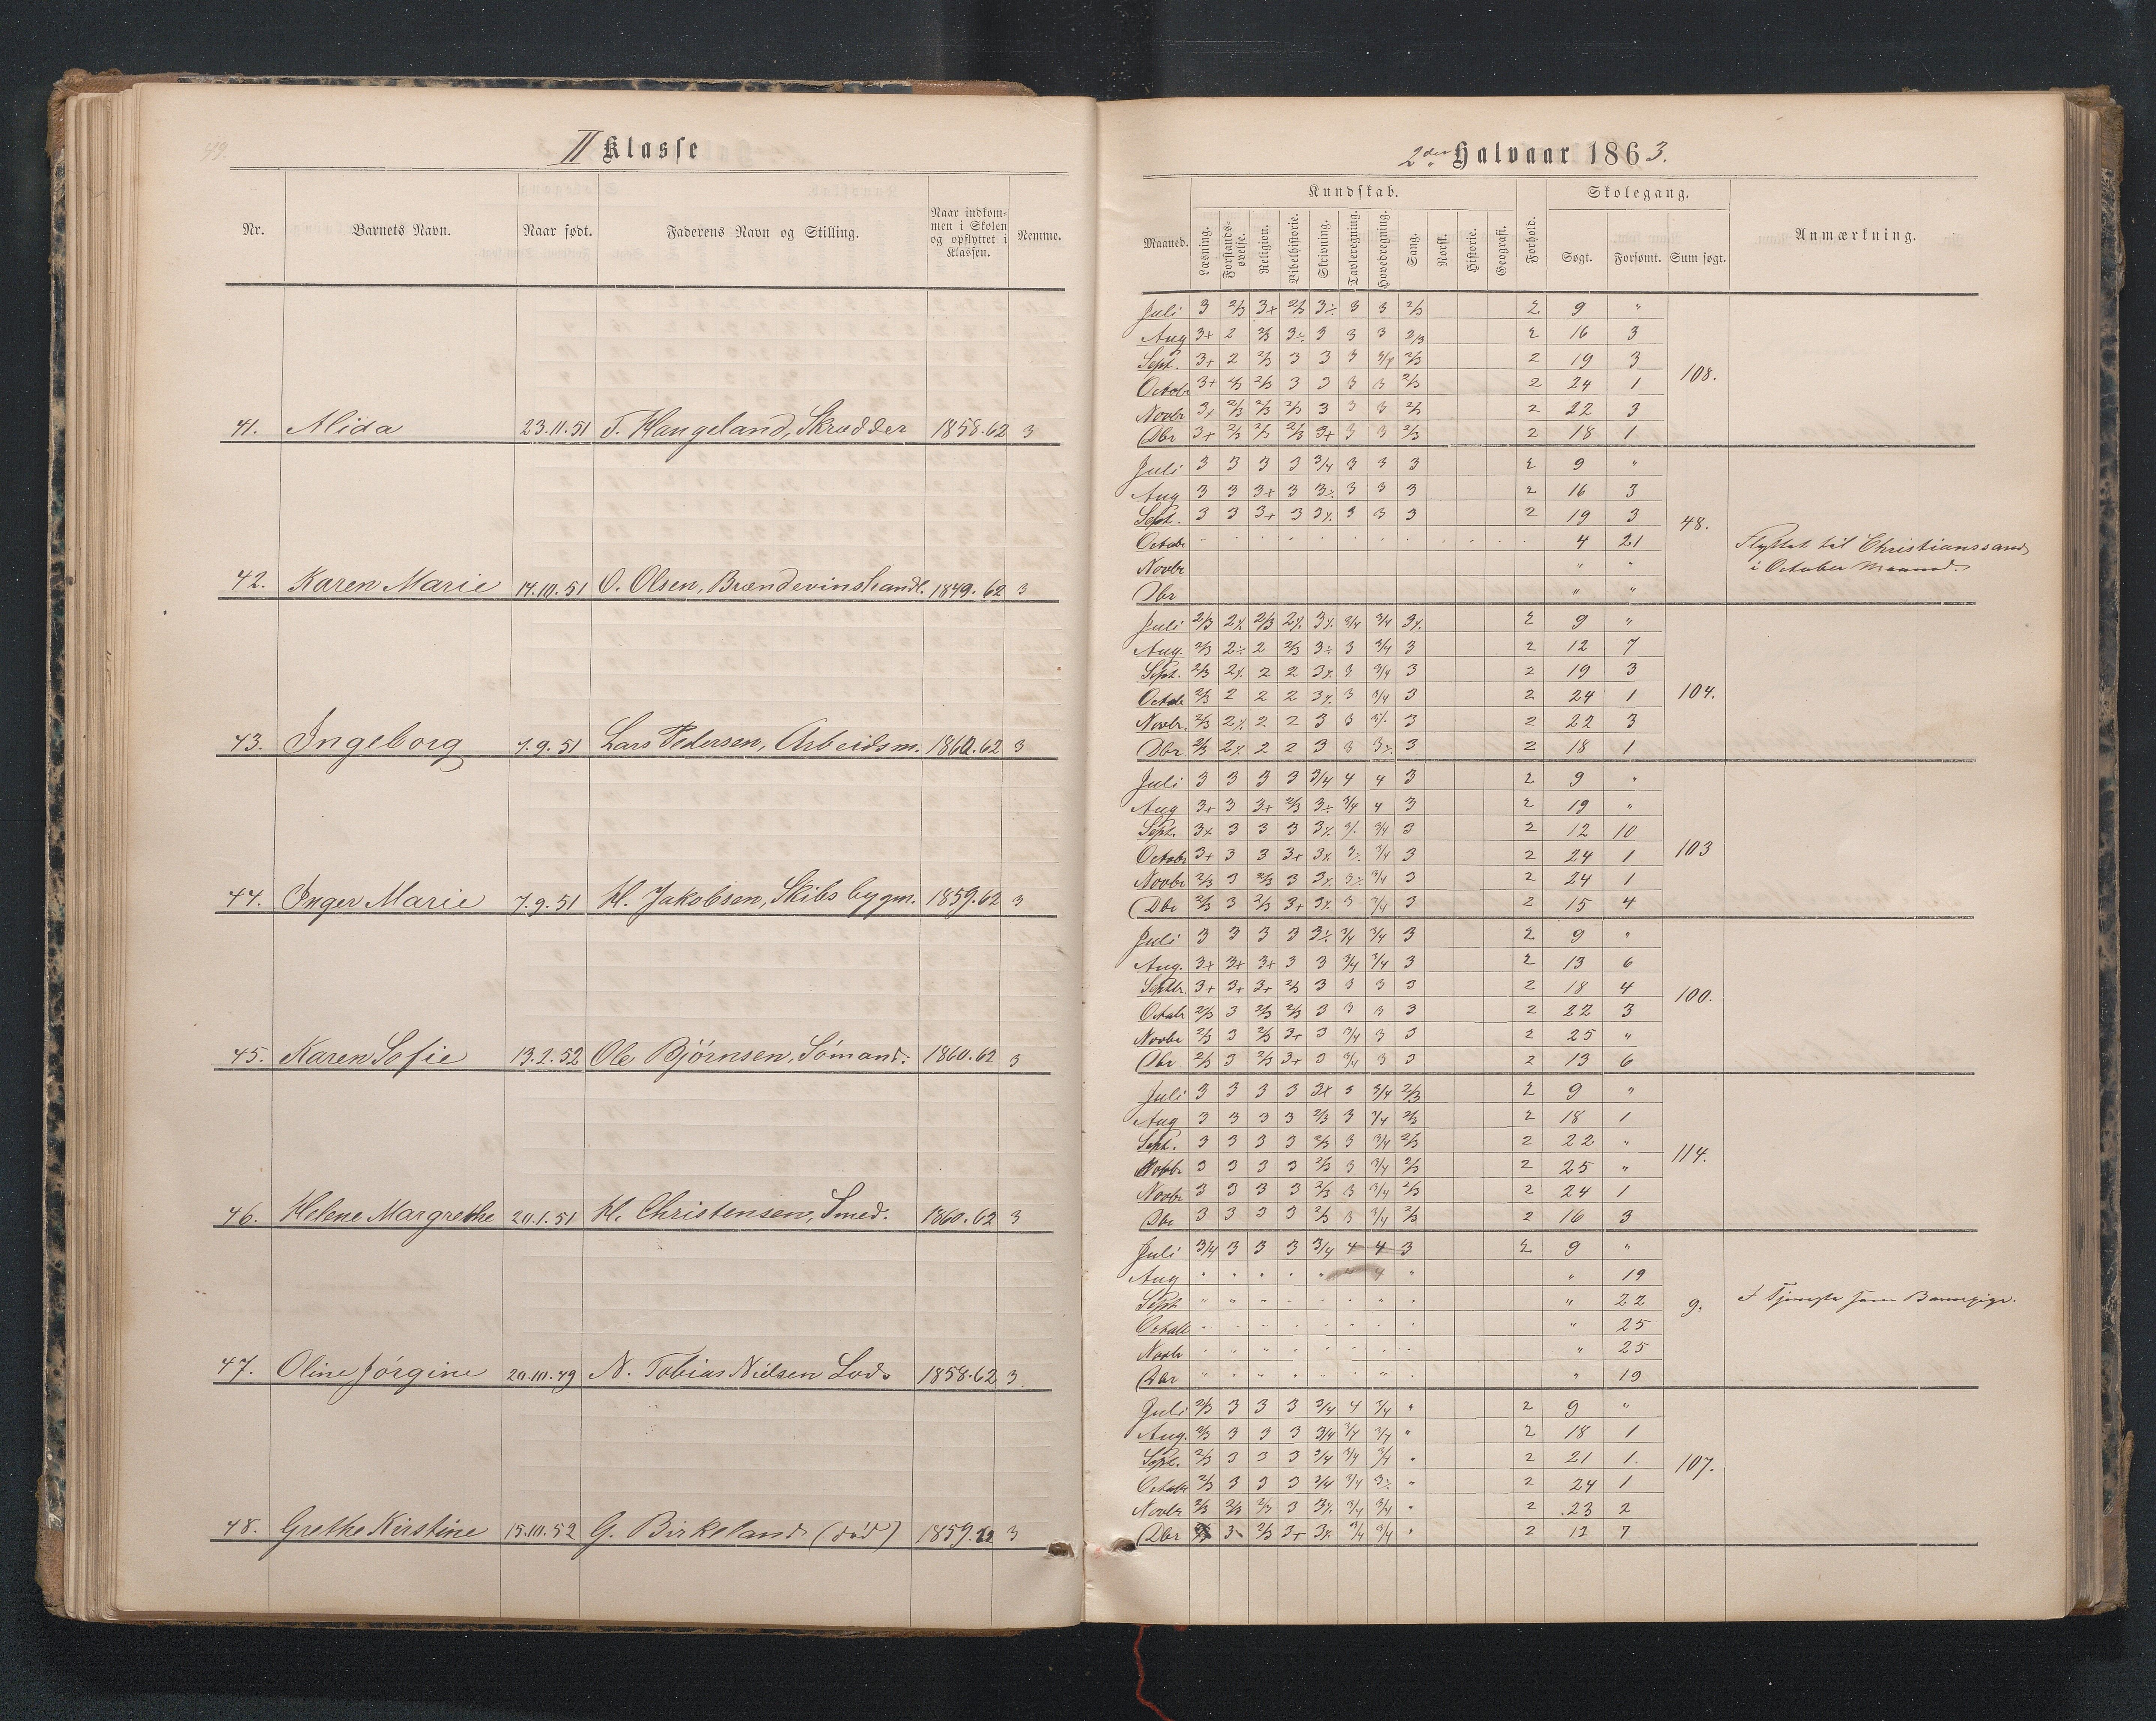 II Klasse
Nr. Barnets Navn. Naar født. Faderens Navn og Stilling. Naar indkommen i Skolen og opflyttet i Klassen. Nemme.
41. Alida 23.11.51 T. Haugeland, Skrædder 1858.62 3
42. Karen Marie 14.10.51 O. Olsen, Brændevinshandl. 1849.62 3
43. Ingeborg 7.9.51 Lars Pedersen, Arbeidsm. 1860.62 3
44. Inger Marie 7.9.51 H. Jakobsen, Skibsbygm. 1859.62 3
45. Karen Sofie 13.2.52 Ole Bjørnsen, Sømand. 1860.62 3
46. Helene Margrethe 20.1.51 H. Christensen, Smed. 1860.62 3
47. Oline Jörgine 20.10.49 N. Tobias Nielsen Lods 1858.62 3.
48. Grethe Kirstine 15.10.52 G. Birkeland (död) 1859.62 3
2den Halvaar 1863.
Kundskab. Skolegang.
Maaned. Læsning. Forstandsøvelse. Religion. Bibelhistorie. Skrivning. Tavleregning. Hovedregning. Sang. Norsk. Historie. Geografi. Forhold. Søgt. Forsømt. Sum søgt. Anmærkning.
Juli 3 2/3 3+ 2/3 3÷ 3 3 2/3 2 9 "
Aug 3+ 2 2/3 3÷ 3 3 3 2/3 2 16 3
Sept. 3+ 2 2/3 3 3 3 3/4 2/3 2 19 3
108.
Octobr 3+ 2/3 2/3 3 3 3 3 2/3 2 24 1
Novbr 3+ 2/3 2/3 2/3 3 3 3 2/3 2 22 3
Dbr 3+ 2/3 2/3 2/3 3+ 3 3 2/3 2 18 1
Juli 3 3 3 3 3/4 3 3 3 2 9 "
Aug 3 3 3+ 3 3÷ 3 3 3 2 16 3
Sept. 3 3 3+ 3 3÷ 3 3 3 2 19 3
48.
Octobr 4 21
Flyttet til Christianssand
Novbr " "
i October Maaned.
Dbr " "
Juli 2/3 2÷ 2/3 2÷ 3÷ 3/4 3/4 3÷ 2 9 "
Aug. 2/3 2÷ 2 2/3 3÷ 3 3/4 3 2 12 7
Sept. 2/3 2÷ 2 2 3÷ 3 3/4 3 2 19 3
Octobr 2/3 2 2 2 3÷ 3 3/4 3 2 24 1
104.
Novbr. 2/3 2÷ 2 2 3 3 3÷ 3 2 22 3
Dbr 2/3 2÷ 2 2 3 3 3÷ 3 2 18 1
Juli 3 3 3 3 3/4 4 4 3 2 9 "
Aug 3+ 3 3+ 2/3 3÷ 3/4 4 3 2 19 "
Sept. 3+ 3 3 3 3÷ 3÷ 3/4 3 2 12 10
Octobr 3+ 3 3 3+ 3÷ 3÷ 3/4 3 2 24 1
103
Novbr 2/3 3 2/3 3 3÷ 3÷ 3/4 3 2 24 1
Dbr 2/3 3 2/3 3+ 3÷ 3 3/4 3 2 15 4
Juli 3 3 3 3 3÷ 3/4 3/4 3 2 9 "
Aug. 3+ 3+ 3+ 3 3 3/4 3/4 3 2 13 6
Septbr. 3+ 3+ 3+ 2/3 3 3 3 3 2 18 4
100.
Octobr 2/3 3 2/3 2/3 3 3 3 3 2 22 3
Novbr 2/3 3 2/3 3+ 3 3/4 3 3 2 25 "
Dbr 2/3 3 2/3 3+ 3 3/4 3 3 2 13 6
Juli 3 3 3 3 3+ 3 3/4 2/3 2 9 "
Aug 3 3 3 3 2/3 3 3/4 2/3 2 18 1
Sept. 3 3 3 3 2/3 3 3/4 2/3 2 22 "
114.
3 3 3 3 2/3 3 3/4 2/3 2 25 "
Novbr 3 3 3 3 2/3 3 3/4 2/3 2 24 1
Dbr 3 3 3 3 2/3 3 3/4 2/3 2 16 3
Juli 3/4 3 3 3 3/4 4 4 3 2 9 "
Aug " 19
Sept " 22
9. I Tjeneste som Barnepige.
Octobr " 25
Novbr " 25
Dbr " 19
Juli 2/3 3 3 3 3/4 4 3/4 " 2 9 "
Aug. 2/3 3 3 3 3/4 3/4 3/4 " 2 18 1
Sept. 2/3 3 3 3 3/4 3/4 3/4 " 2 21 1.
107.
Octobr 2/3 3 3 3 3/4 3/4 3÷ " 2 24 1
Novbr 2/3 2/3 2/3 3 3÷ 3/4 3/4 " 2 23 2
Dbr 3 2/3 3+ 3÷ 3/4 3/4 " 2 12 7